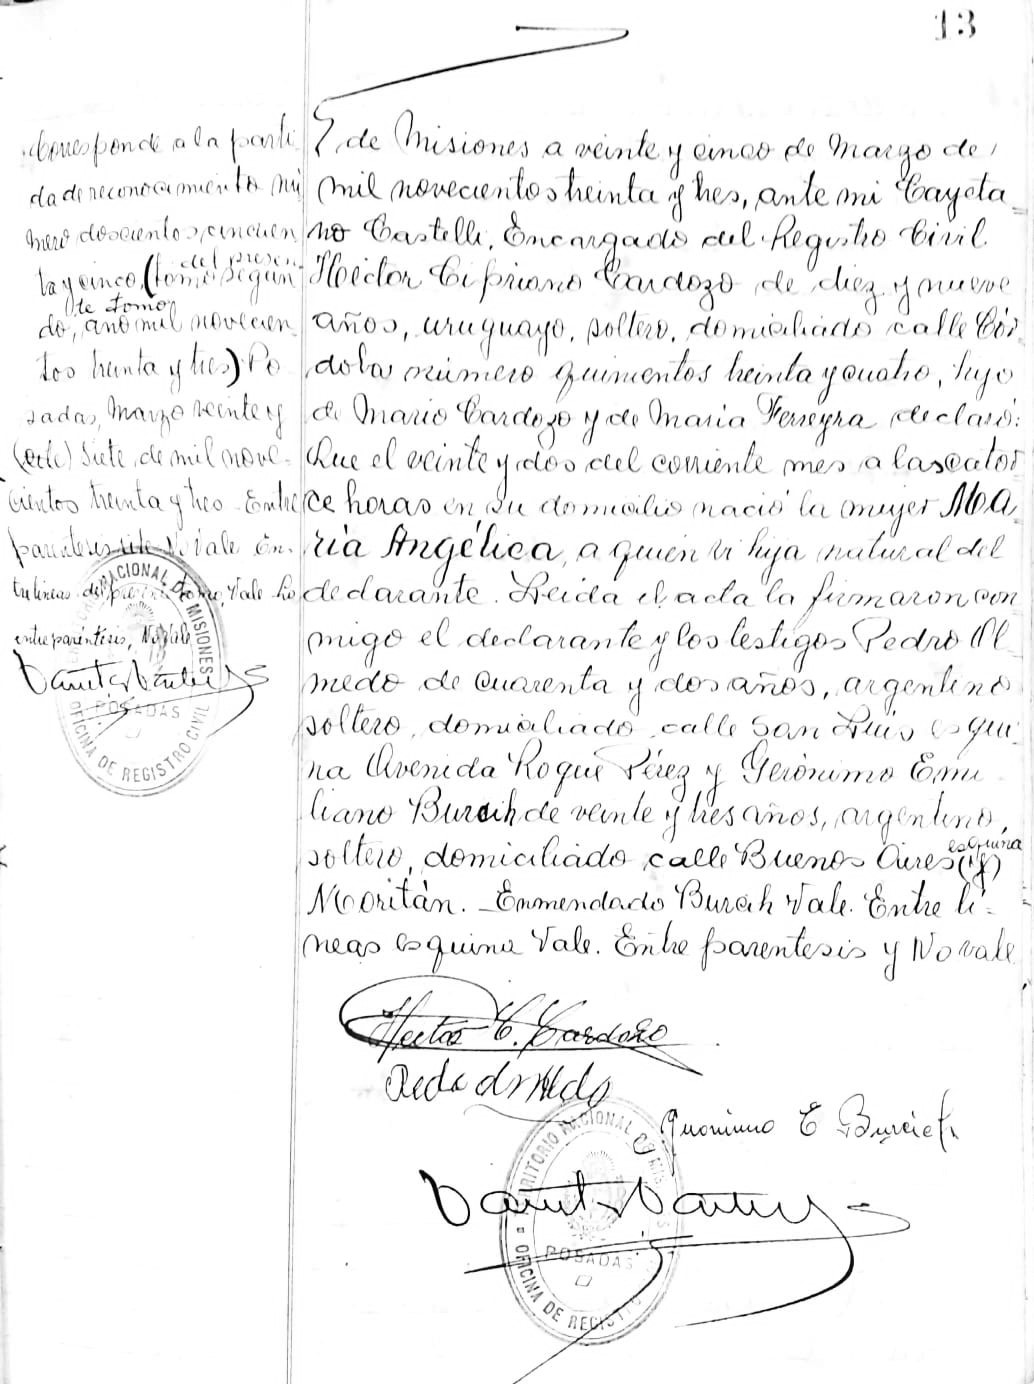 13
Corresponde a la parti
da de reconocimiento nú
mero doscientos cincuen
del presen
ta y cinco, (tomo segun
te tomo
do, año mil novecien
tos treinta y tres) Po
sadas, Marzo veinte y
(ocho) siete de mil nove-
cientos treinta y tres - Entre
parentesis ocho No vale En-
tre lineas del presente tomo, Vale lo
entre paréntisis, No Vale
de Misiones a veinte y cinco de Marzo de
mil novecientos treinta y tres, ante mi Cayeta
no Castelli, Encargado del Registro Civil
Héctor Cipriano Cardozo de diez y nueve
años, uruguayo, soltero, domiciliado calle Cór
doba número quinientos treinta y cuatro, hijo
de Mario Cardozo y de María Ferreyra declaró:
Que el veinte y dos del corriente mes a las cator
ce horas en su domicilio nació la mujer Ma
ría Angélica, a quien vi hija natural del
declarante. Leida el acta la firmaron con
migo el declarante y los testigos Pedro Ol
medo de cuarenta y dos años, argentino
soltero, domiciliado calle San Luis esqui
na Avenida Roque Pérez y Gerónimo Emi
liano Burcih de veinte y tres años, argentino,
esquina
soltero, domiciliado calle Buenos Aires (y)
Moritán. - Enmendado Burcih Vale. Entre li-
neas esquina Vale. Entre parentesis y No vale
Hector C. Cardozo
Pedro Olmedo
Geronimo E Burcich
TERRITORIO NACIONAL DE MISIONES
POSADAS
OFICINA DE REGISTRO CIVIL
NACIONAL DE MISIONES
POSADAS
OFICINA DE REGISTRO CIVIL